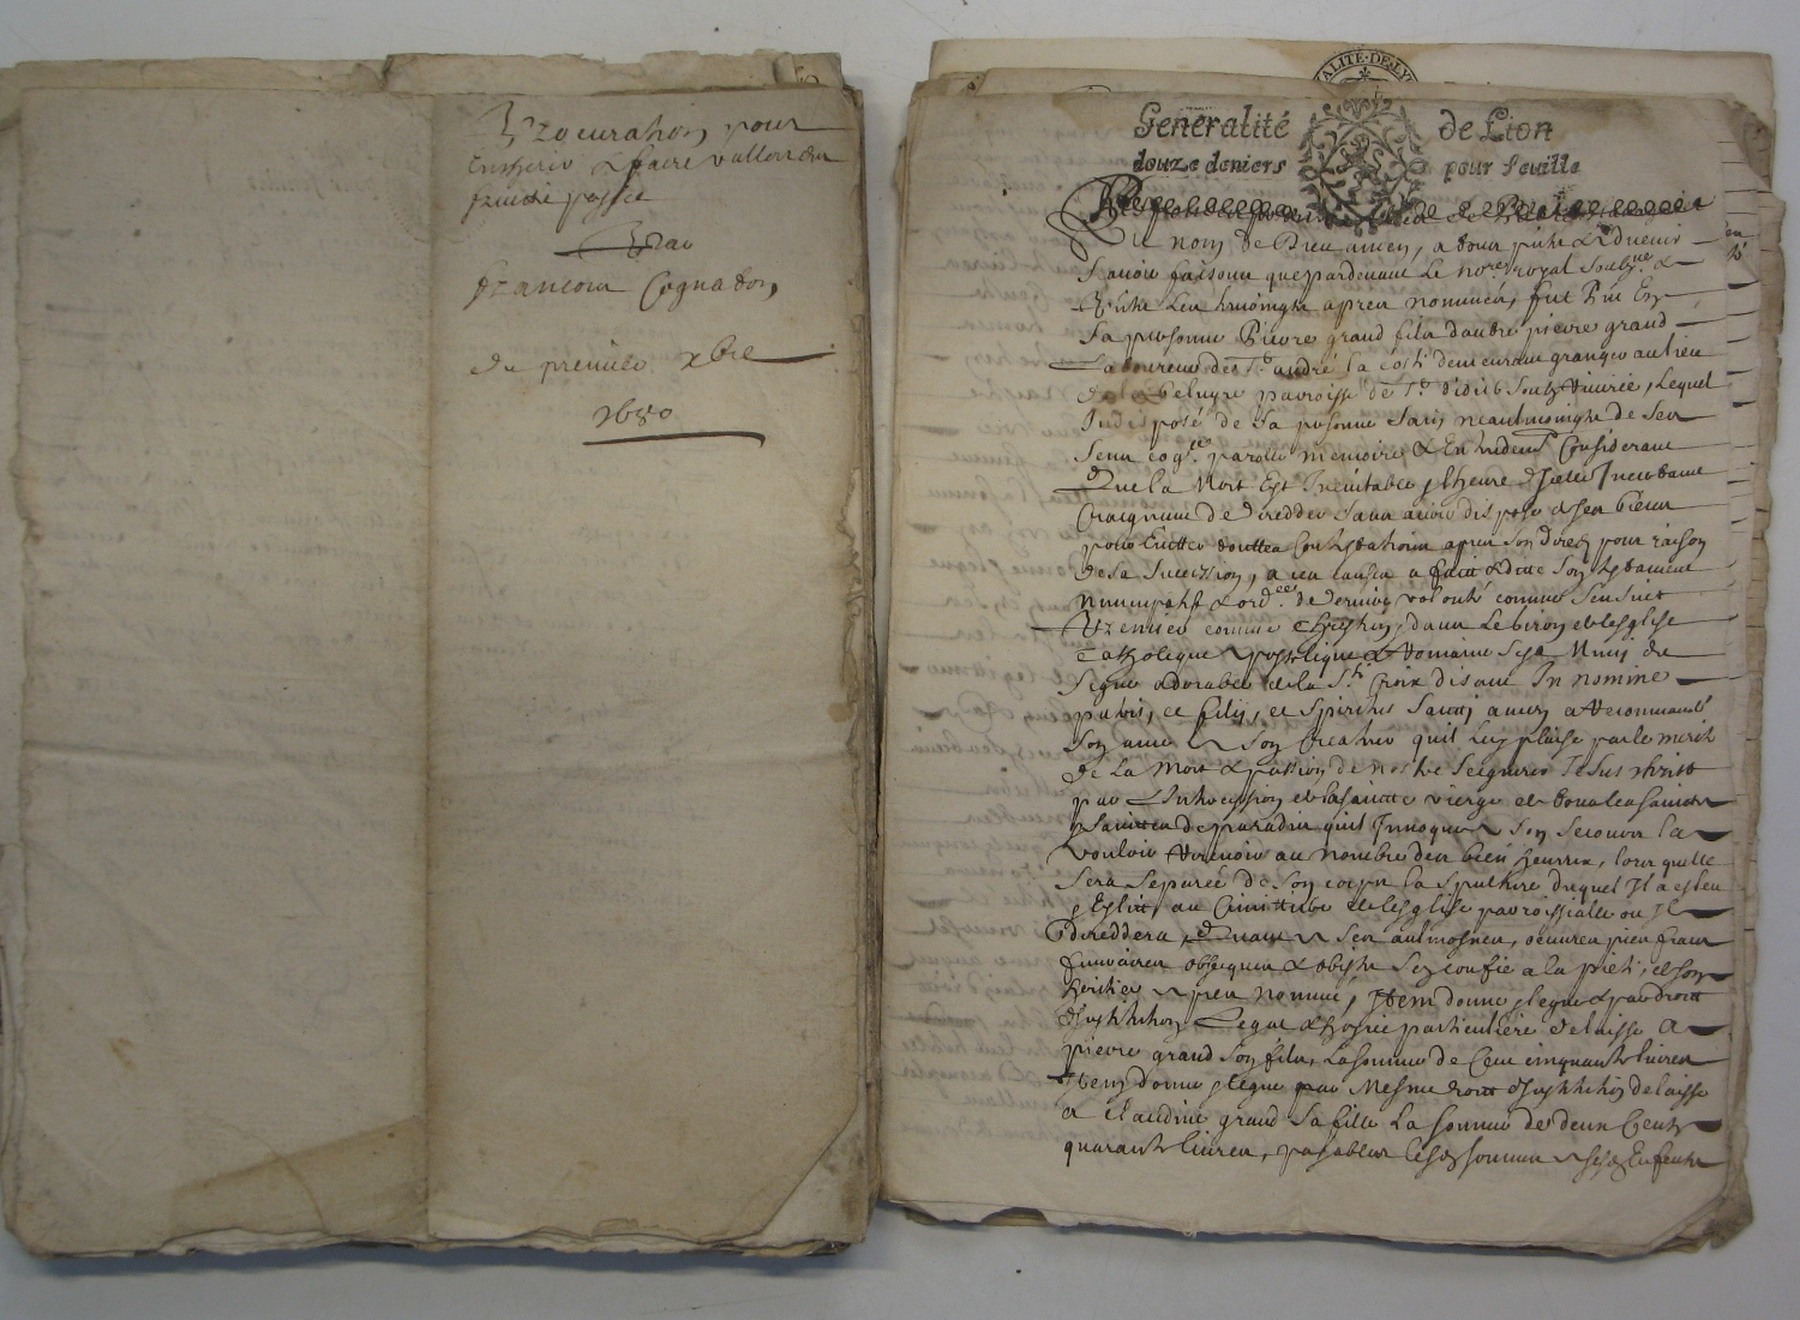 Procuration pour
faire
passée
Par
francois Cognadon
du premier xbre
1680
ALITE·DE·LY
Generalité de Lion
douze deniers pour feuille
Au nom de Dieu amen, a tous &
scavoir faisons que pardevant Le no.re royal soubz.né &
apres nommés, fut En
sa personne Pierre grand fils dautre pierre grand
Laboureur de S.t andré la coste demeurant granger au lieu
de la parroisse de S.t didier soubz Riverie, Lequel
Indisposé de sa personne sain neaulmoingts de ses
sens parolle memoire & Entendemt Considerant
Que la Mort Est Inevitable & lheure dIcelle Incertaine
Craignant de decedder sans avoir disposé de ses biens
pour Evitter touttes Contestations apres son deces pour raison
de sa succession, a ces causes a faict & dicté son testament
nuncupatif & ord.ce de derniere volonté comme sensuict
Premier comme Chrestien dans Le giron de lesglise
Catholique Apostolique & Romaine sest Muny du
signe adorable de la S.te Croix disant In nomine
patris, et filij, et spiritus sancti amen a Recommandé
son ame A son Createur quil Luy plaise par le merite
de La Mort & passion de nostre seigneur Jesus christ
par LIntercession de la saincte vierge et de tous les saincts
& sainctes de paradis quil Invoque A son secours la
vouloir Recevoir au nombre des bien heureux, lors quelle
sera separée de son corps la sepulture duquel Il a esleu
& Eslict au Cimettiere de lesglise parroissialle ou Il
deceddera, & Quant A ses aulmosnes, oeuvres pies frais
funeraires obseques & obists sen confie a la pieté de son
heritier Apres nommé, Item donne & legue & par droict
dInstitution Legat & hoirie particuliere delaisse A
pierre grand son fils, La somme de Cent cinquante livres
Item donne & legue par Mesme droict dInstitution delaisse
a Claudine grand sa fille La somme de deux Cents
quarante livres, payables sommes A Enfents